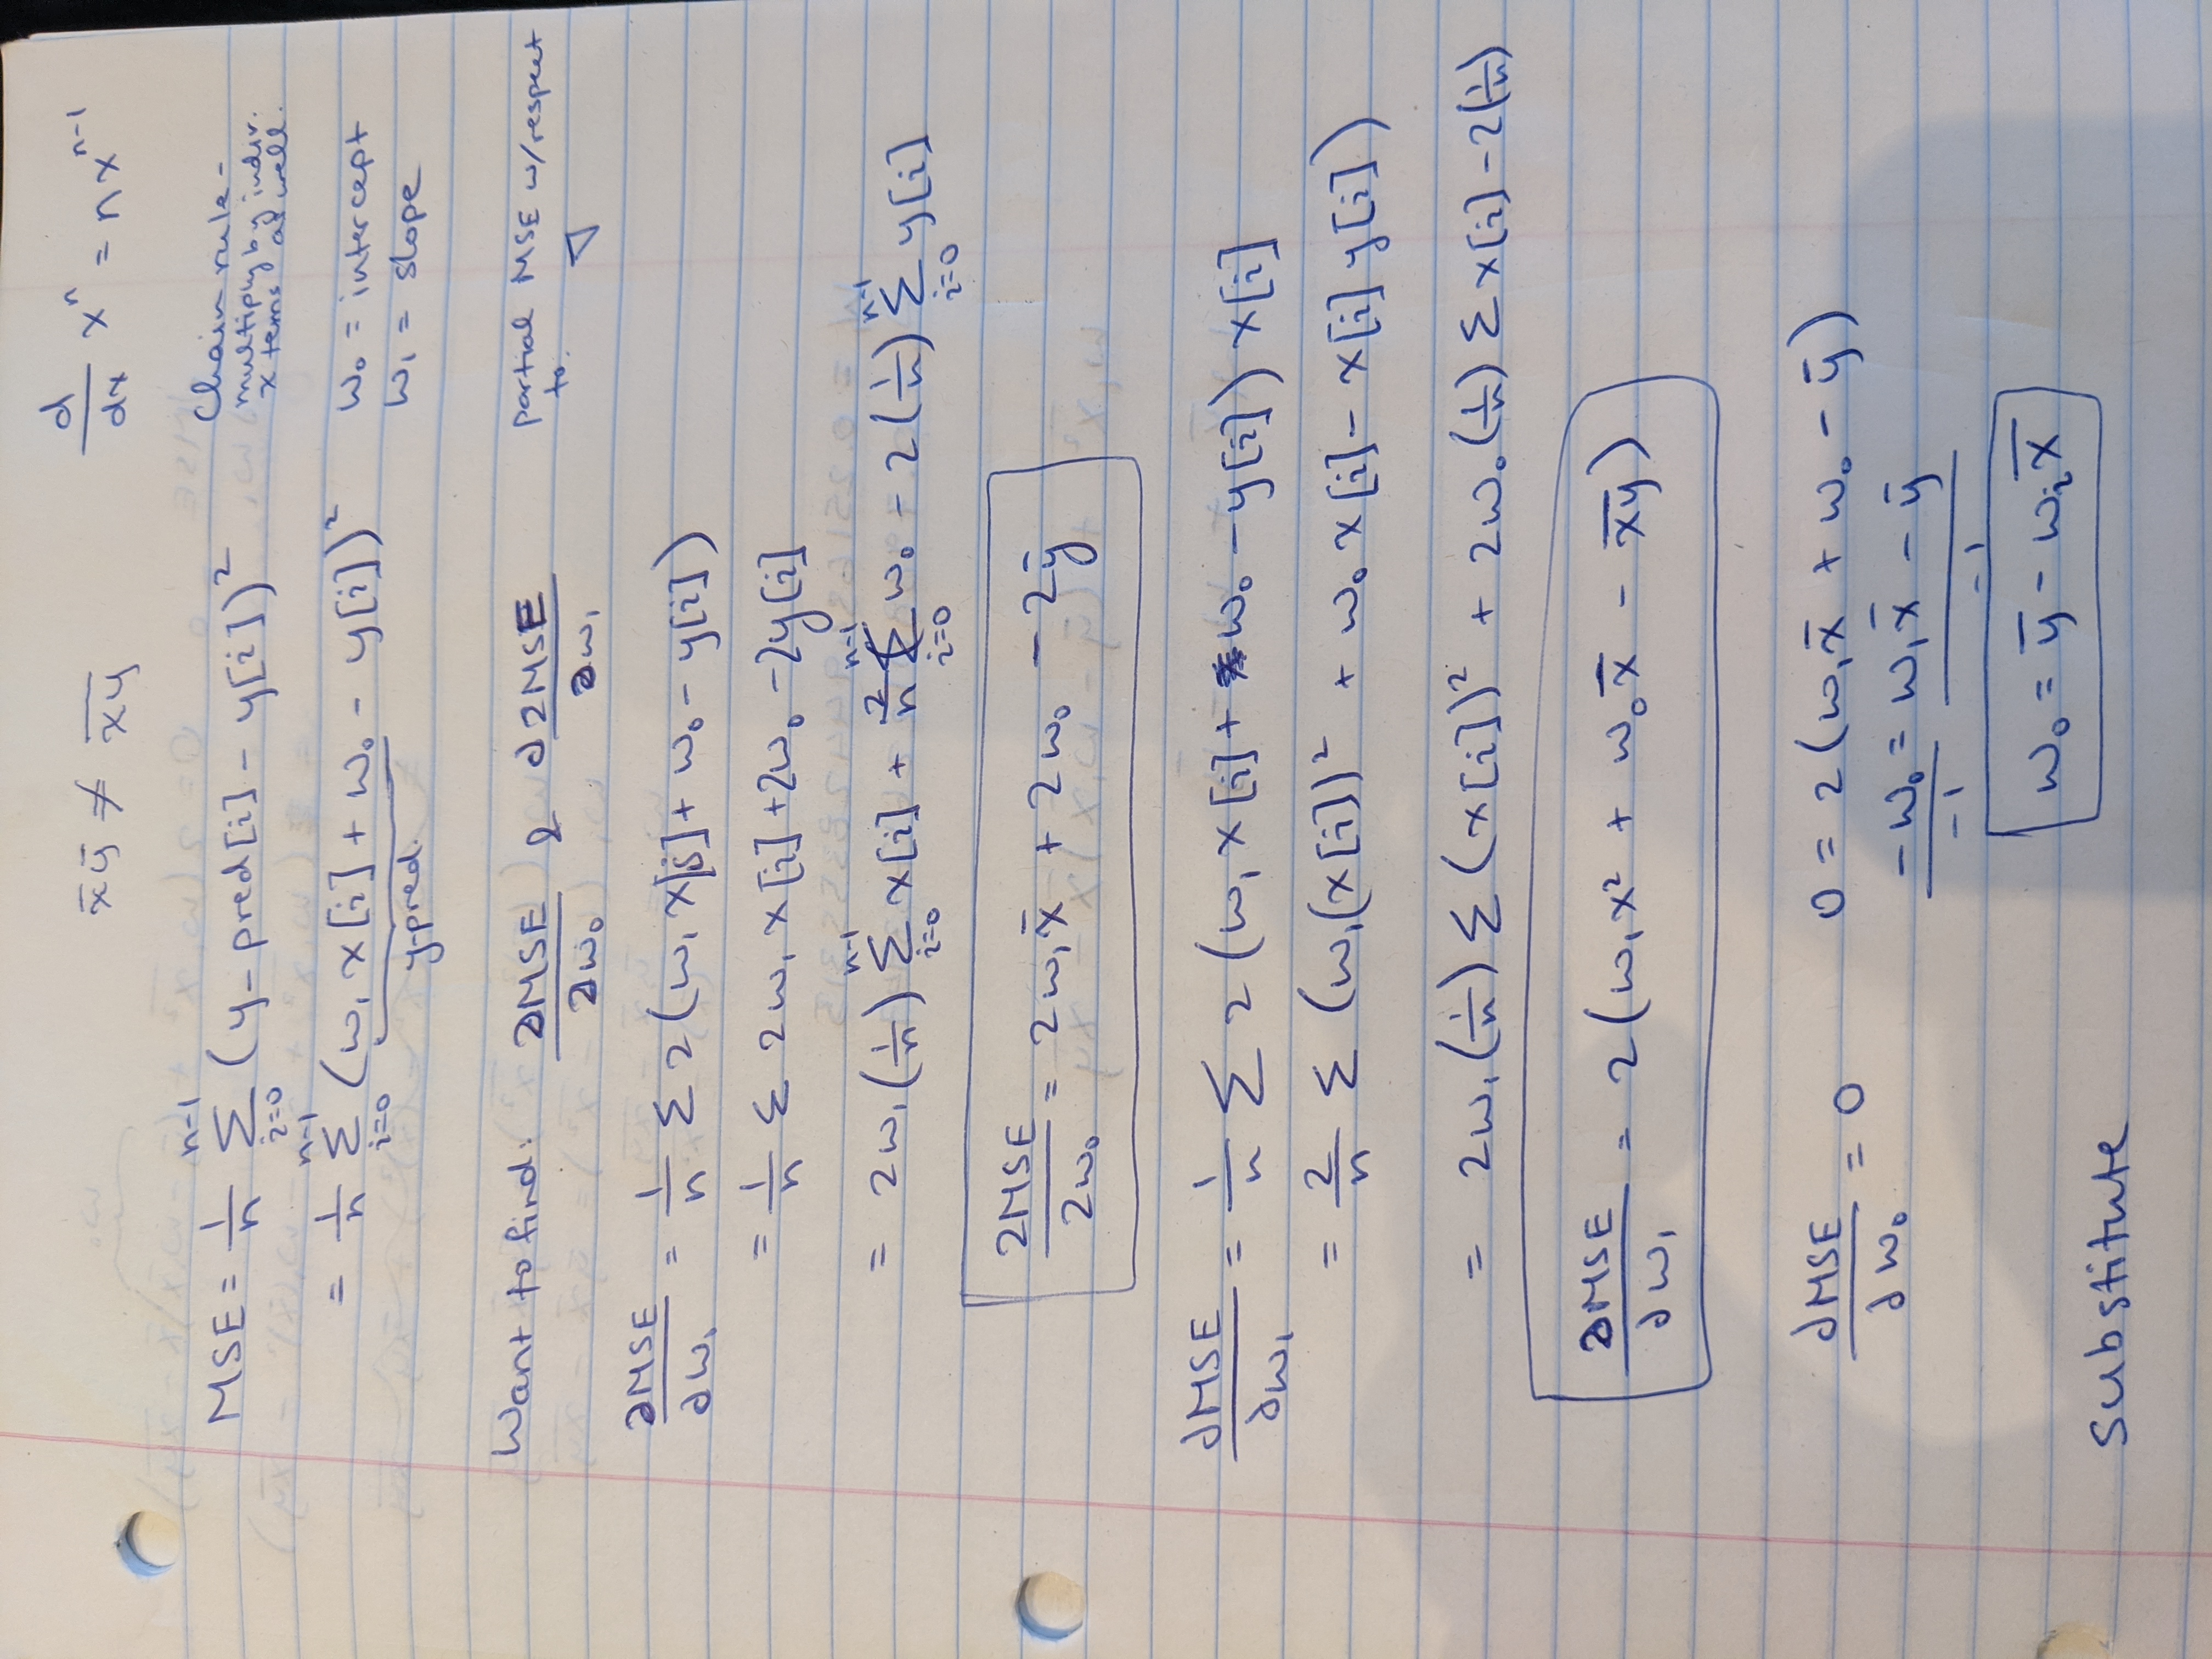 x̄ȳ ≠ x̅y̅    d/dx xⁿ = nxⁿ⁻¹
MSE = 1/n Σ_{i=0}^{n-1} (y_pred[i] - y[i])²
Chain rule -
multiply by indiv.
x terms as well.
= 1/n Σ_{i=0}^{n-1} (w₁ x[i] + w₀ - y[i])²
y-pred.
w₀ = intercept
w₁ = slope
Want to find: ∂MSE/∂w₀ & ∂2MSE/∂w₁
partial MSE w/respect
to. ▽
∂MSE/∂w₀ = 1/n Σ 2(w₁ x[i] + w₀ - y[i])
= 1/n Σ 2w₁ x[i] + 2w₀ - 2y[i]
= 2w₁(1/n) Σ_{i=0}^{n-1} x[i] + 2/n Σ_{i=0}^{n-1} w₀ - 2(1/n) Σ_{i=0}^{n-1} y[i]
2MSE/2w₀ = 2w₁x̄ + 2w₀ - 2ȳ
∂MSE/∂w₁ = 1/n Σ 2(w₁ x[i] + w₀ - y[i]) x[i]
= 2/n Σ (w₁(x[i])² + w₀ x[i] - x[i] y[i])
= 2w₁(1/n) Σ (x[i])² + 2w₀(1/n) Σ x[i] - 2(1/n)
∂MSE/∂w₁ = 2(w₁x² + w₀x̄ - x̅y̅)
∂MSE/∂w₀ = 0    0 = 2(w₁x̄ + w₀ - ȳ)
-w₀/-1 = w₁x̄ - ȳ/-1
w₀ = ȳ - wᵢx̄
Substitute